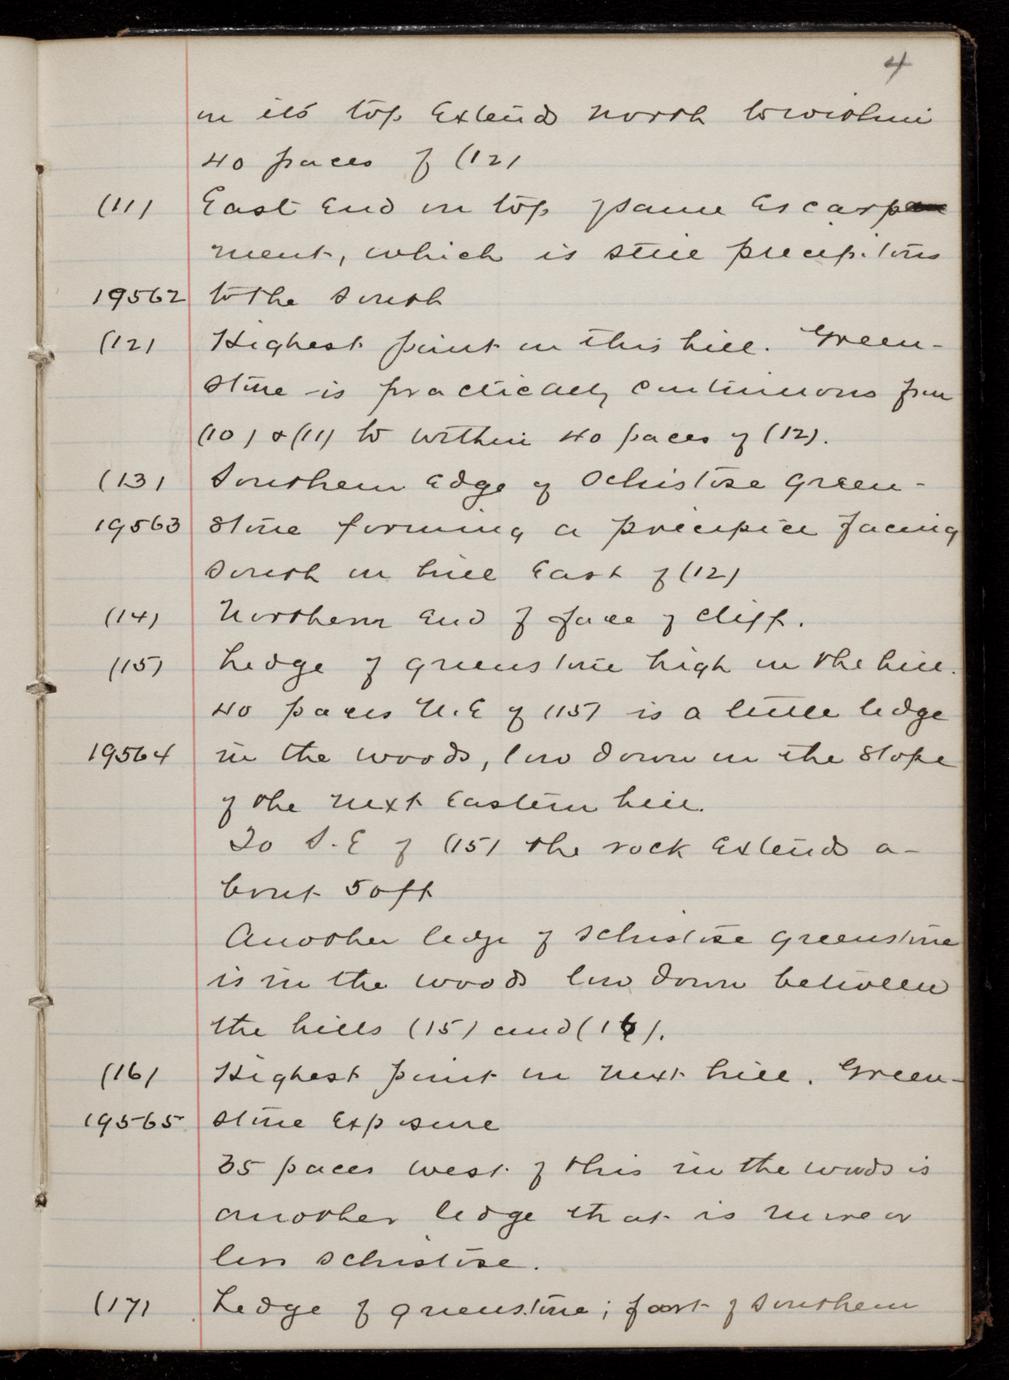 4
on its top extends north to within
40 paces of (12)
(11) East end on top same escarp
ment, which is still precipitous
19562 to the south
(12) Highest point on this hill. Green-
stone is practically continuous from
(10) & (11) to within 40 paces of (12).
(13) Southern edge of schistose green-
19563 stone forming a precipice facing
south on hill east of (12)
(14) Northern end of face of cliff.
(15) Ledge of greenstone high on the hill.
40 paces N.E of (15) is a little ledge
19564 in the woods, low down on the slope
of the next eastern hill.
To S.E of (15) the rock extends a-
bout 50ft
Another ledge of schistose greenstone
is in the woods low down between
the hills (15) and (16).
(16) Highest point on next hill. Green-
19565 stone exposure
35 paces west of this in the woods is
another ledge that is more or
less schistose.
(17) Ledge of greenstone; foot of southern